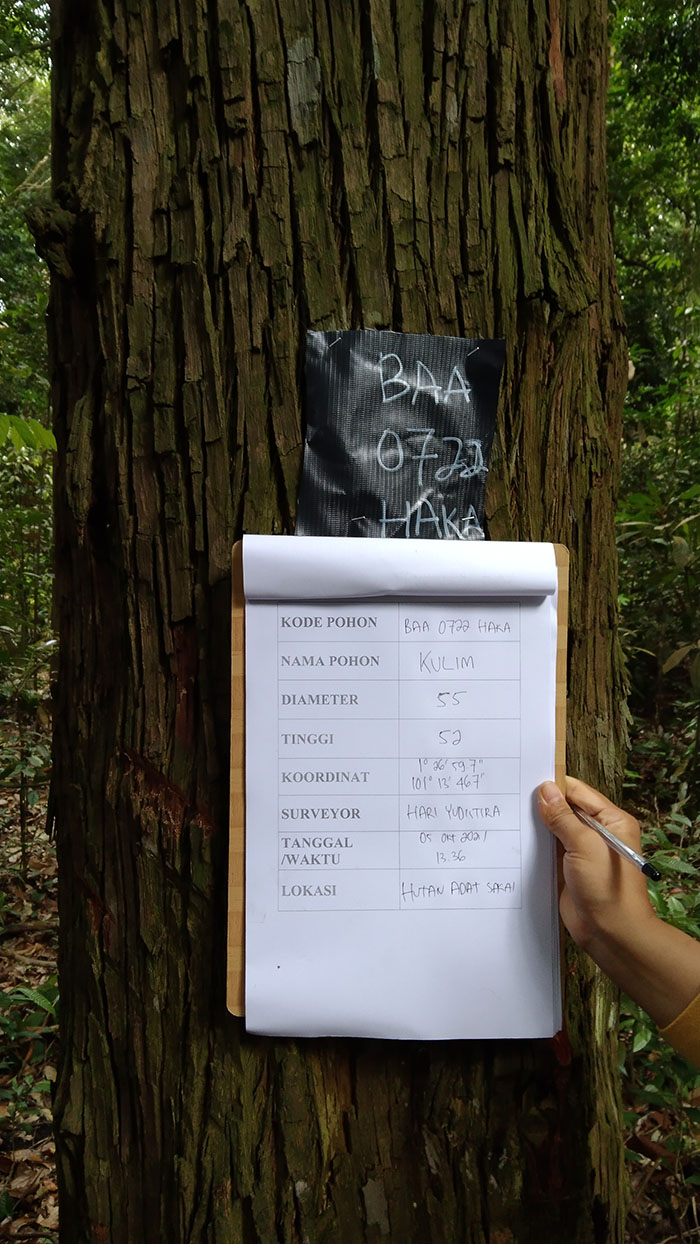 BAA
0722
HAKA
KODE POHON BAA 0722 HAKA
NAMA POHON KULIM
DIAMETER 55
TINGGI 52
KOORDINAT 1° 26' 59.7"
101° 13' 46.7"
SURVEYOR HARI YUDISTIRA
TANGGAL 05 OKT 2021
/WAKTU 13.36
LOKASI HUTAN ADAT SAKAI